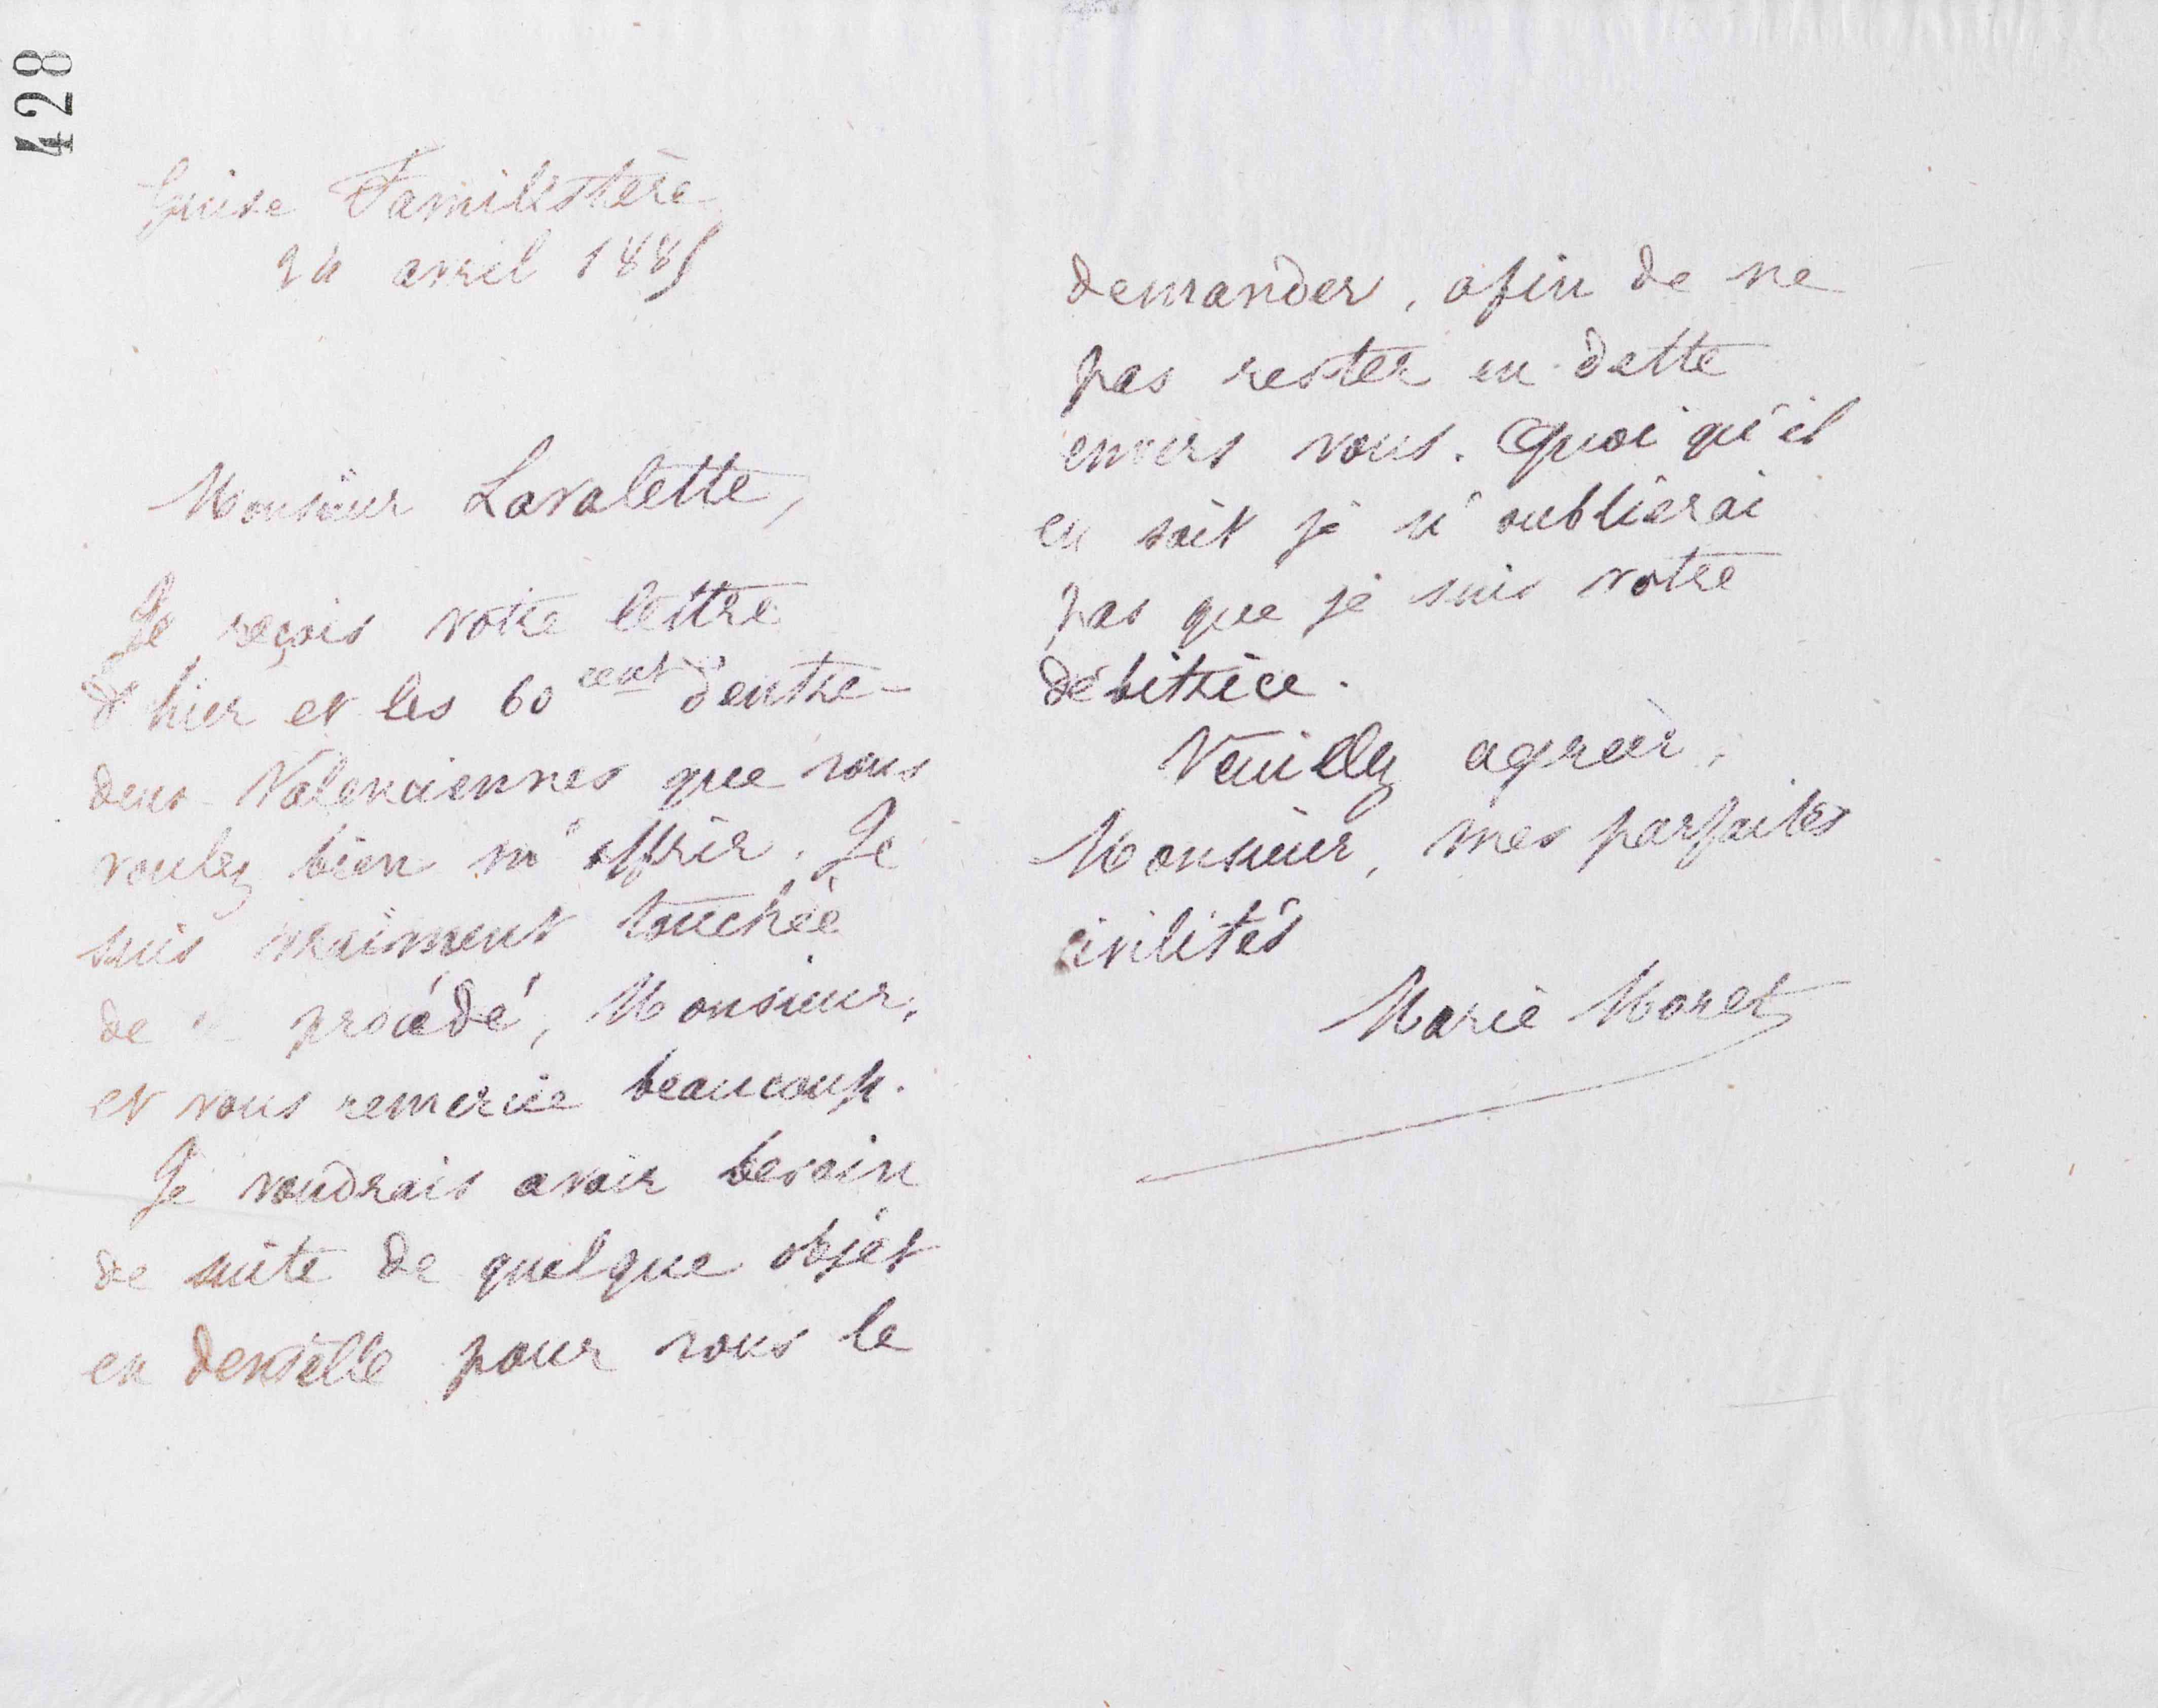 428
Guise Familistère
24 avril 1885
Monsieur Lavalette,
Je reçois votre lettre
d'hier et les 60 cent d'entre-
deux Valenciennes que vous
voulez bien m'offrir. Je
suis vraiment touchée
de ce procédé, Monsieur,
et vous remercie beaucoup.
Je voudrais avoir besoin
de suite de quelque objet
en dentelle pour vous le
demander, afin de ne
pas rester en dette
envers vous. Quoi qu'il
en soit je n'oublierai
pas que je suis votre
débitrice.
Veuillez agréer,
Monsieur, mes parfaites
civilités
Marie Moret